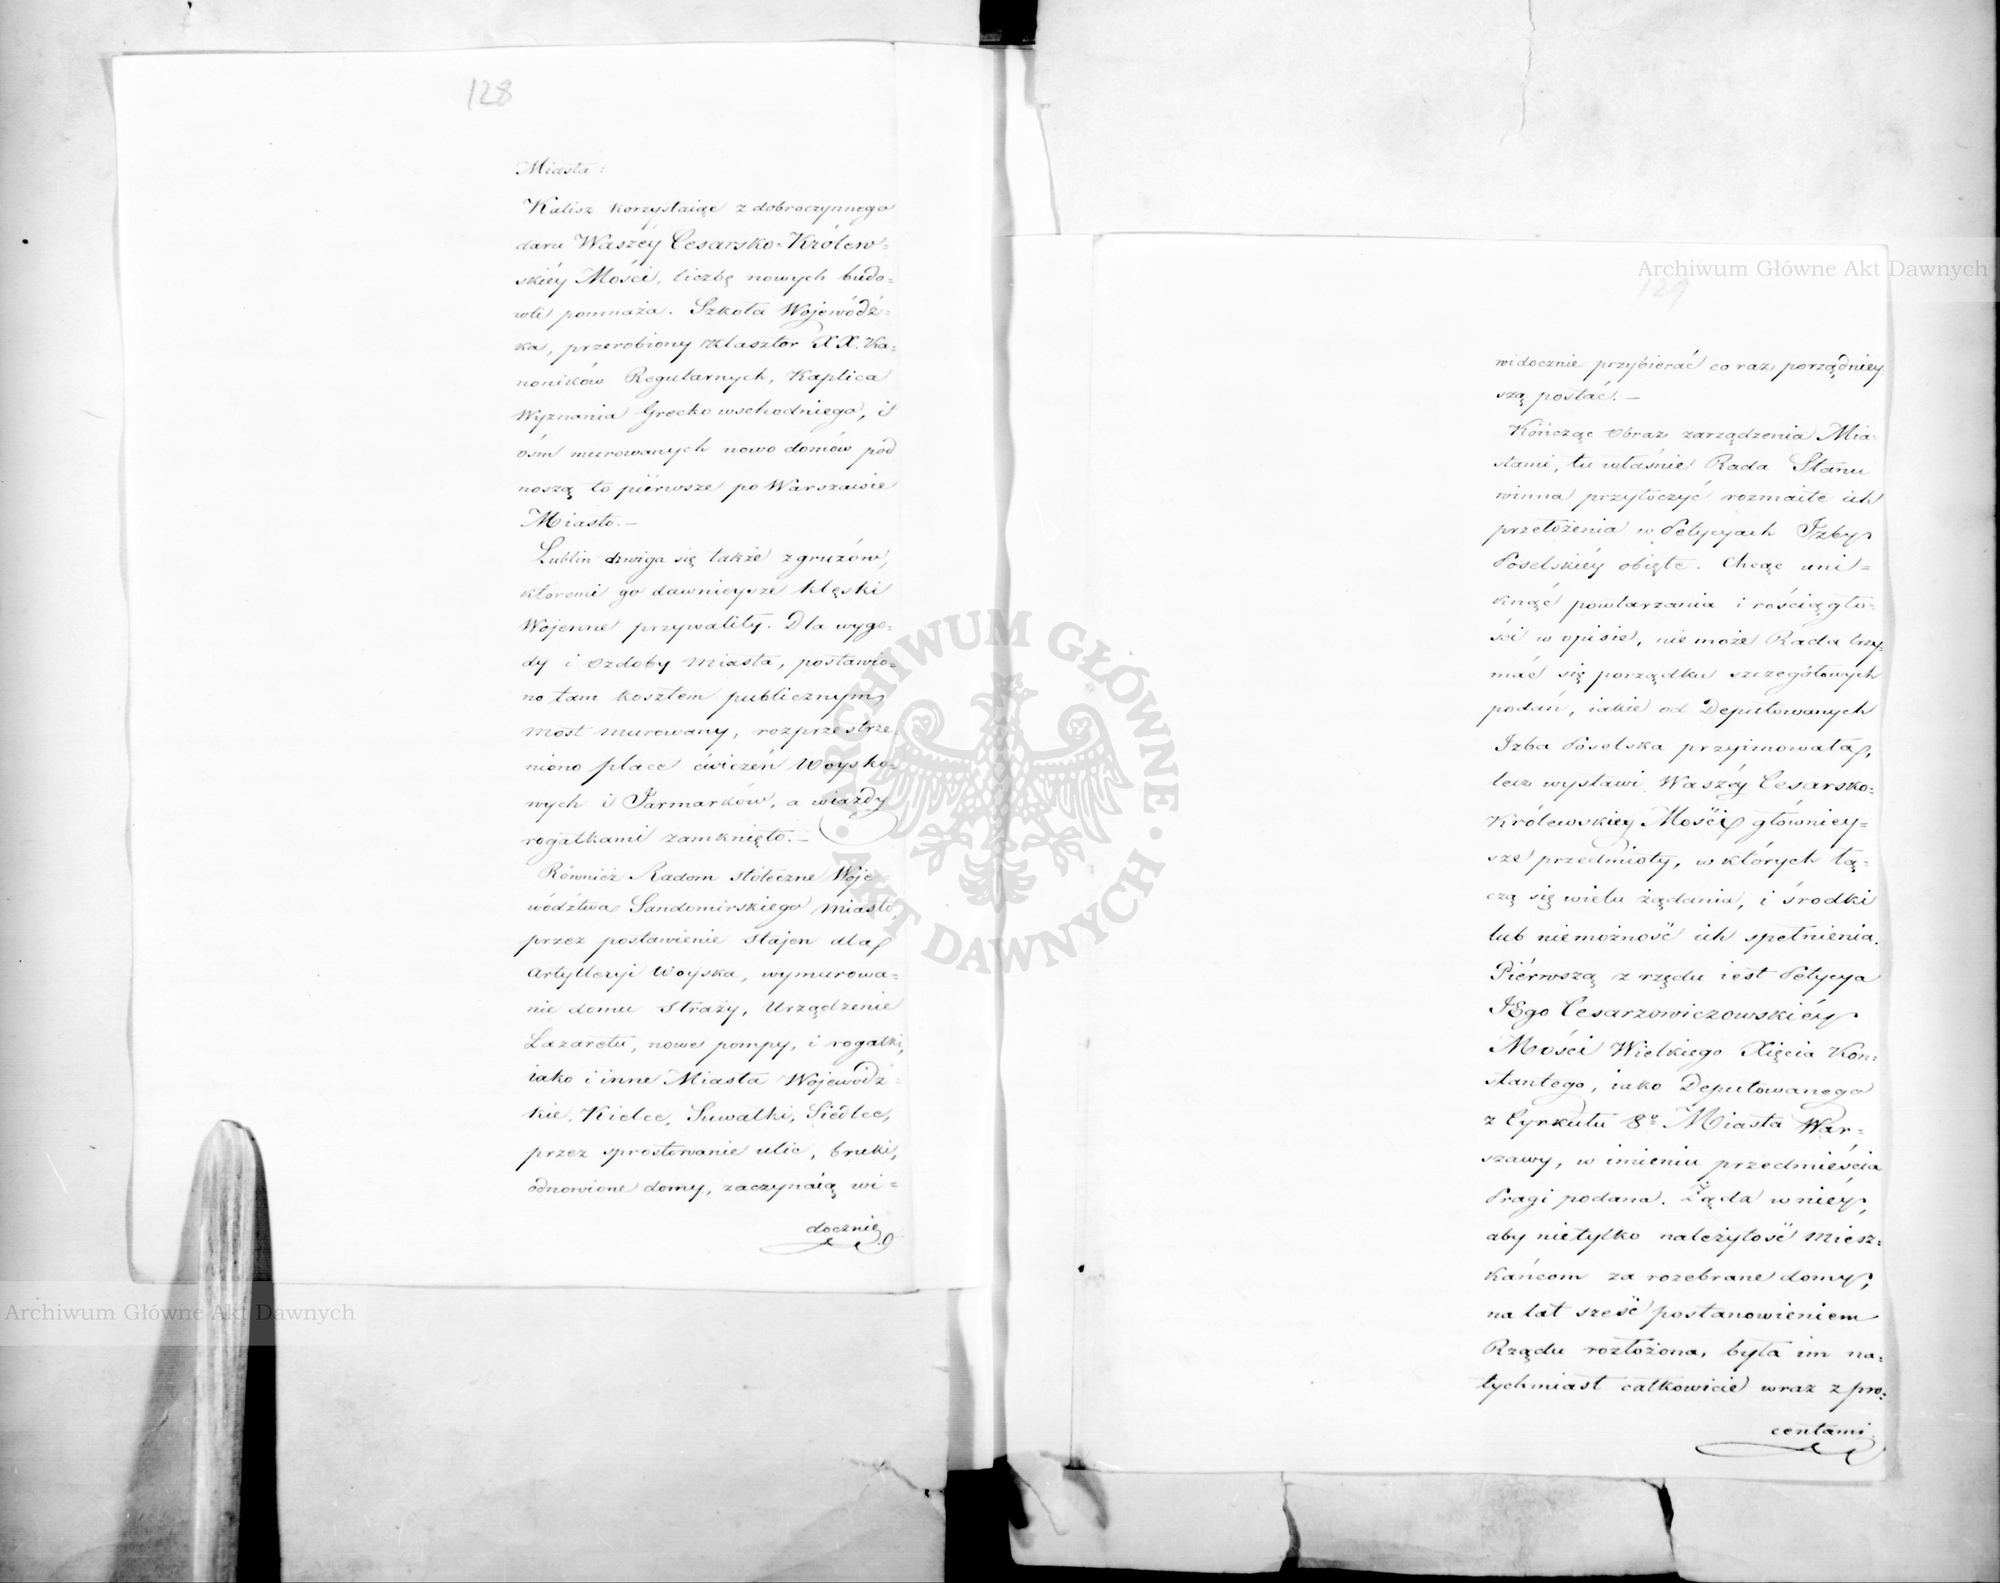 128
Miasta:
Kalisz korzystaiąc z dobroczynnego
daru Waszéy Cesarsko-Królew-
skiéy Mości, liczbę nowych budo-
wli pomnaża. Szkoła Wojewódz-
ka, przerobiony klasztor XX. Ka-
noników Regularnych, Kaplica
Wyznania Grecko wschodniego, i
ośm murowanych nowo domów pod
noszą to piérwsze po Warszawie
Miasto.—
Lublin dzwiga się także z gruzów,
któremi go dawnieysze klęski
Wojenne przywaliły. Dla wygo-
dy i ozdoby miasta, postawio-
no tam kosztem publicznym
most murowany, rozprzestrze-
niono place ćwiczeń Woysko-
wych i Jarmarków, a wiazdy
rogatkami zamknięto.—
Również Radom stołeczne Woje
wództwa Sandomirskiego miasto,
przez postawienie stajen dla
Artylleryi Woyska, wymurowa-
nie domu Straży, Urządzenie
Lazaretu, nowe pompy, i rogatki,
iako i inne Miasta Wojewódz-
kie, Kielce, Suwałki, Siedlce,
przez sprostowanie ulic, bruki,
odnowione domy, zaczynaią wi-
docznie
Archiwum Główne Akt Dawnych
129
widocznie przybierać co raz porządniey
szą postać.—
Kończąc Obraz zarządzenia Mia-
stami, tu właśnie Rada Stanu
winna przytoczyć rozmaite ich
przełożenia w Petycyach Izby
Poselskiéy obięte. Chcąc uni-
knąć powtarzania i rościągło-
ści w opisie, nie może Rada trzy-
mać się porządku szczegółowych
podań, iakie od Deputowanych
Izba Poselska przyimowała,
lecz wystawi Waszéy Cesarsko-
Królewskiey Mości główniey-
sze przedmioty, w których łą-
czą się wielu żądania, i środki
lub niemożność ich spełnienia.
Piérwszą z rzędu iest Petycya
JEgo Cesarzowiczowskiéy
Mości Wielkiego Xięcia Kon-
stantego, iako Deputowanego
z Cyrkułu 8º Miasta War-
szawy, w imieniu przedmieścia
Pragi podana. Żąda w niey,
aby nietylko należytość miesz-
kańcom za rozebrane domy,
na lat sześć postanowieniem
Rządu rozłożona, była im na-
tychmiast całkowicie wraz z pro-
centami
ARCHIWUM GŁÓWNE · AKT DAWNYCH ·
Archiwum Główne Akt Dawnych